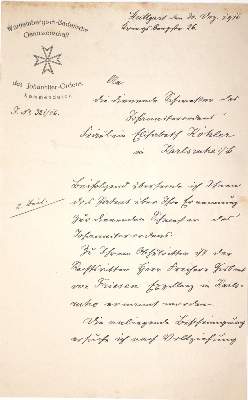 Württembergisch-Badische
Genossenschaft
des Johanniter-Ordens
Kommendator.
J. №. 321/16.
Stuttgart den 30. Dez. 1916
26.
An
die dienende Schwester des
Johanniterordens
Fräulein Elisabeth Köhler
in Karlsruhe i/B
Beifolgend übersende ich Ihnen
das Patent über Ihre Ernennung
zur dienenden Schwester des
Johanniterordens.
Zu Ihrem ist der
Rechtsritter Herr Freiherr
von Friesen Exzellenz in Karls-
ruhe ernannt worden.
Die anliegende Bescheinigung
ersuche ich nach Vollziehung